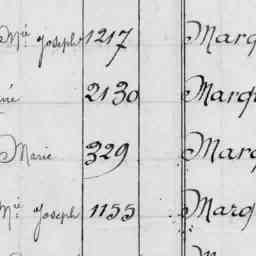 Mie Joseph 1217 Marq
né 2130 Marq
Marie 329 Marq
Mie Joseph 1155 Marq